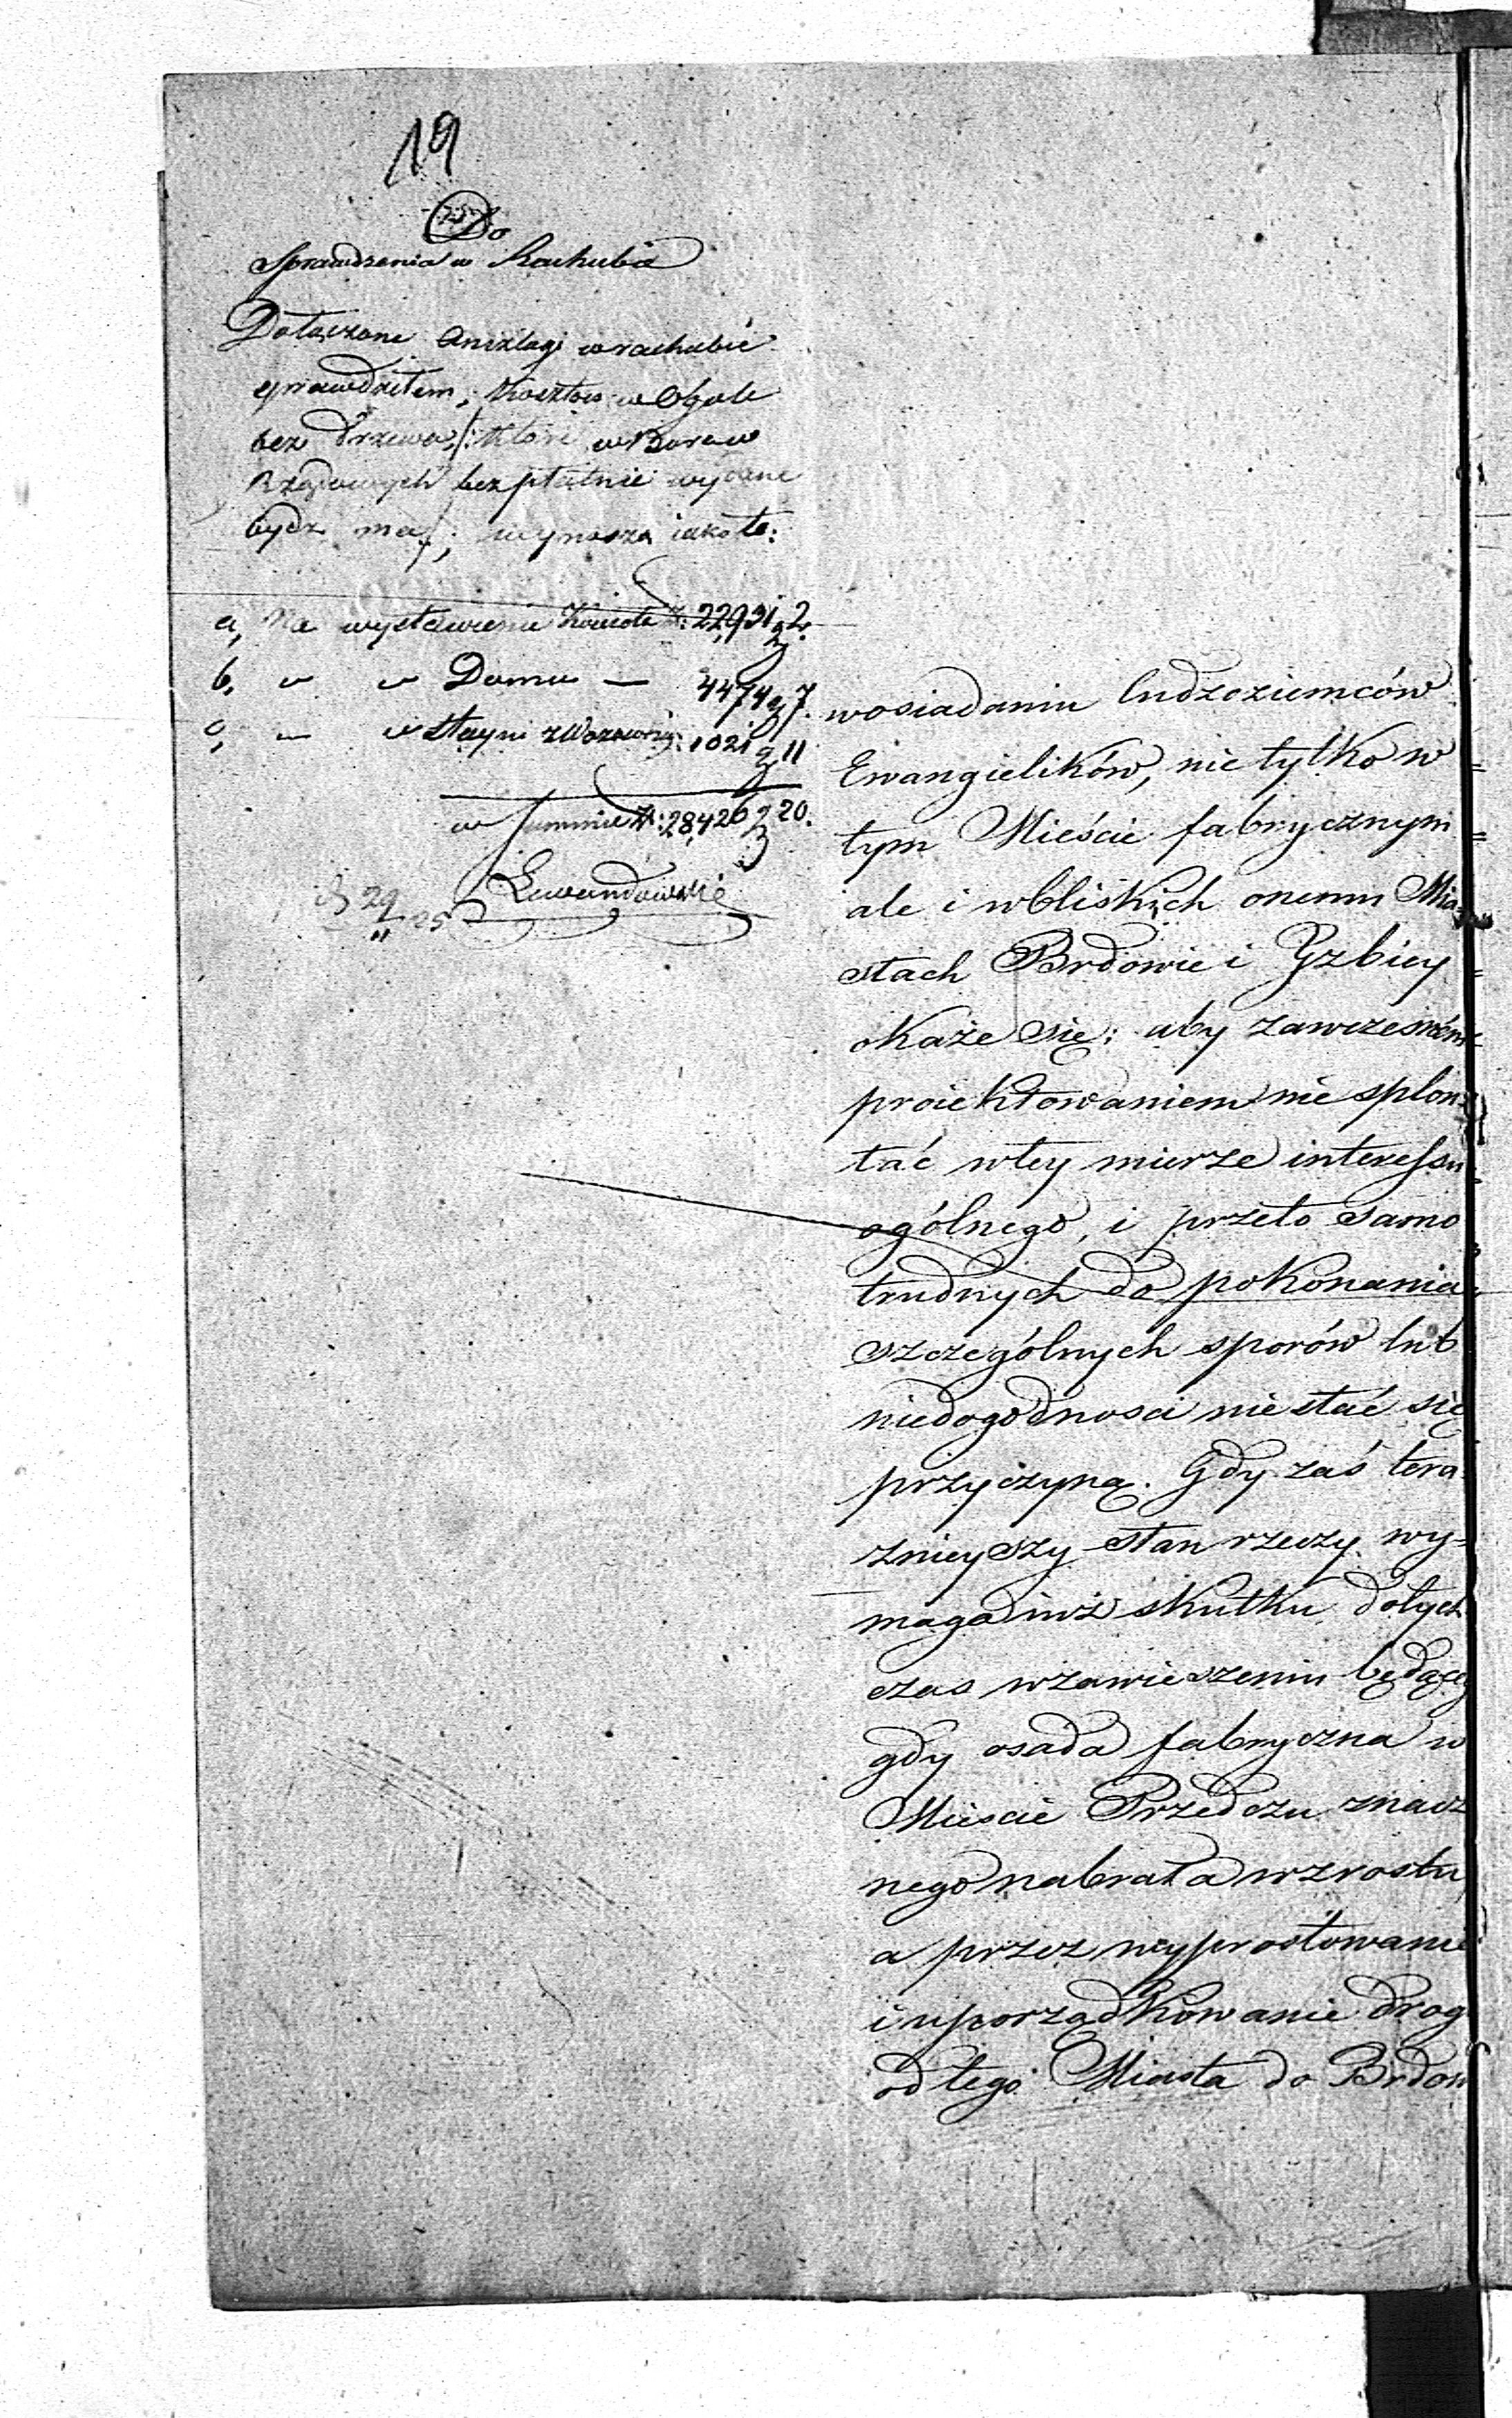 19
Do
Sprawdzenia w Rachubie
Dołączone Anszlagi w rachubie
sprawdziłem, Kosztow w Ogule
bez Drzewa /: które w Borow
Rządowych bezpłatnie wydane
bydz ma :/ wynoszą iako to:
a, Na wystawienie Kościoła Zł: 22,931 g 2.
b, " " Domu — 4474 g 7.
c, — " Stayni z Wozownią: 1021 g 11
w Summie Zł: 28,426 g 20.
Lewandowski
29
11 25
wosiadaniu Cudzoziemców
Ewangielików, nie tylko w
tym Mieście fabrycznym
ale i wbliskich onemu Mia
stach Brdowie i Yzbicy
okaże się; aby zawczesném
proiektowaniem nie splon
tać wtey mierze interessu
ogólnego, i przeto samo
trudnych do pokonania
szczególnych sporów lub
niedogodnosci nie stać się
przyczyną. Gdy zaś tera
znieyszy stan rzeczy wy=
maga iuż skutku dotych
czas wzawieszeniu będącey
gdy osada fabryczna w
Mieście Przedczu znacz
nego nabrała wzrostu
a przez wyprostowanie
i uporządkowanie drog
od tego Miasta do Brdow